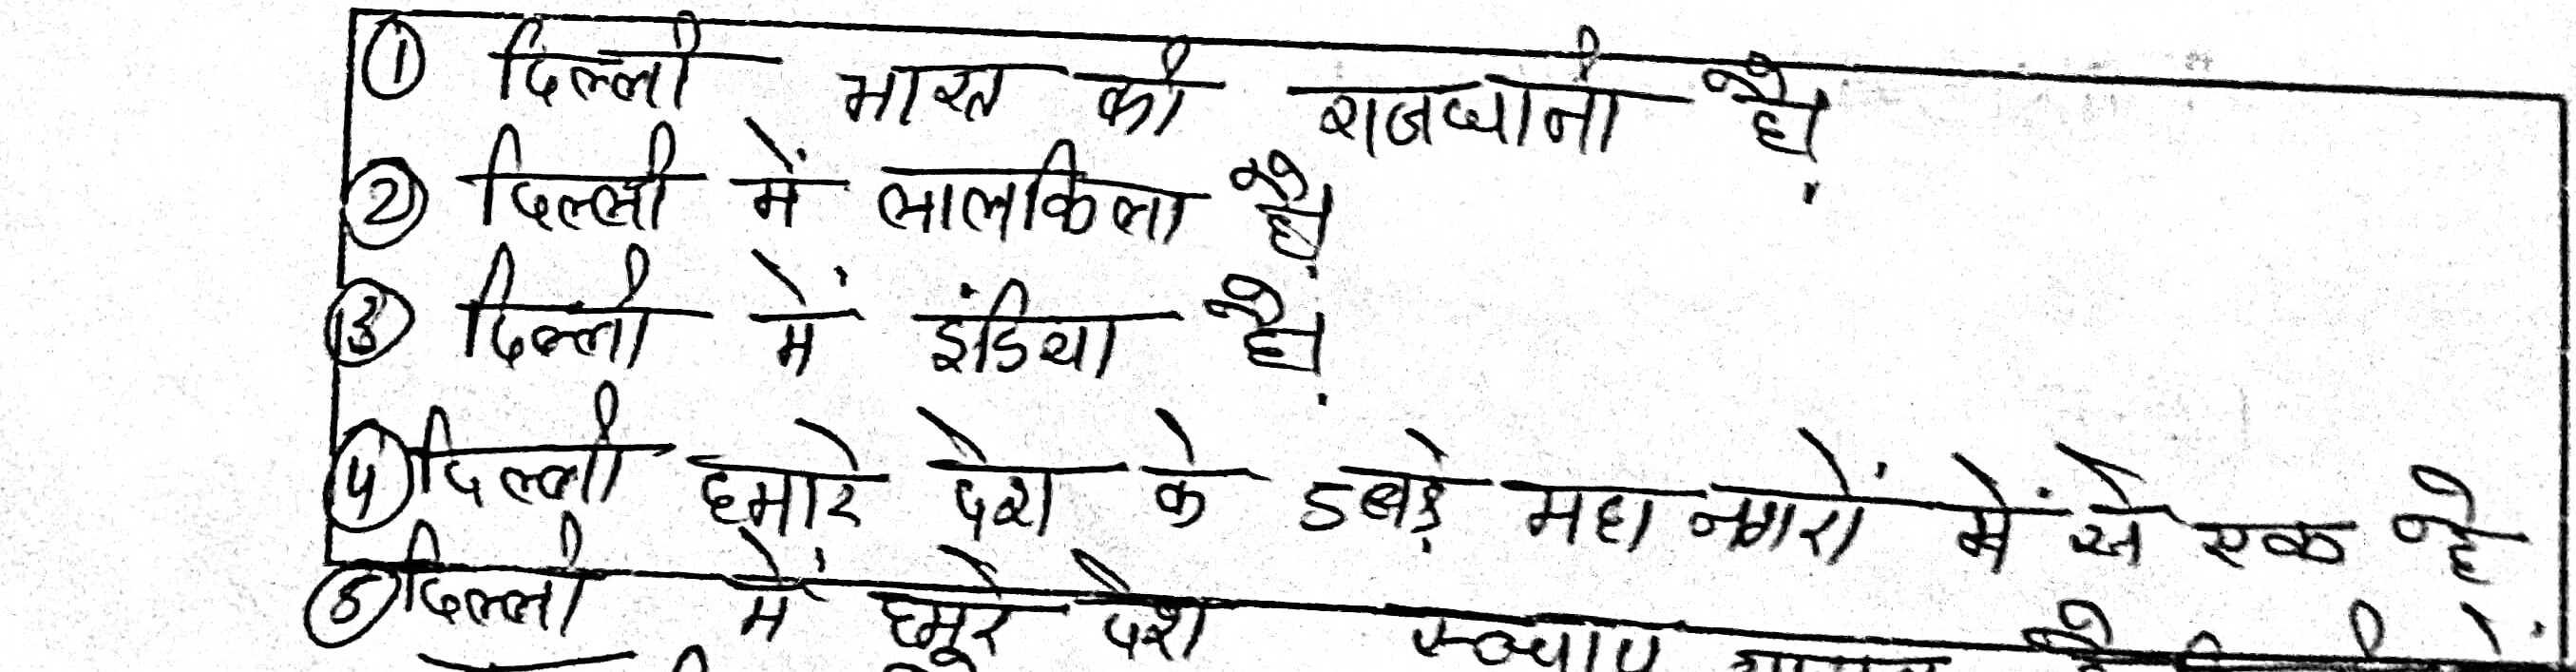 ① दिल्ली भारत की राजधानी है
② दिल्ली में लालकिला है
③ दिल्ली में इंडिया है
④ दिल्ली हमारे देश के बड़े महा नगरों में से एक है
⑤ दिल्ली में हमारे देश